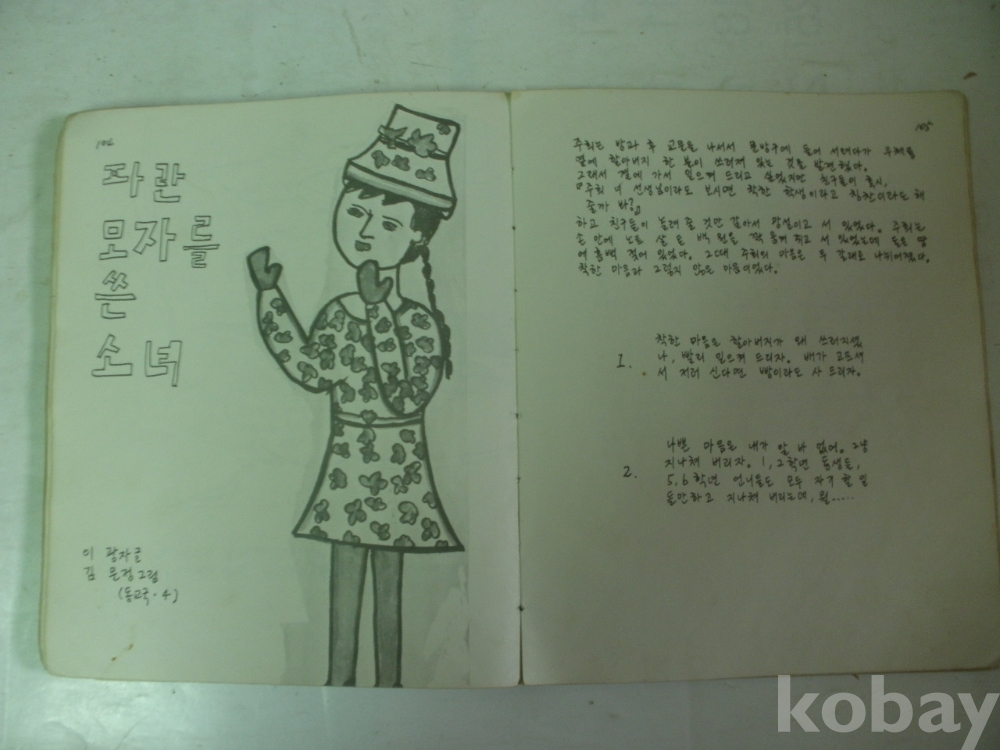 104
파란
모자를
쓴
소녀
이 광자 글
김 문정 그림
(동교국·4)
105
주희는 방과 후 교문을 나서서 문방구에 들어 서려다가 우체통
옆에 할아버지 한 분이 쓰러져 있는 것을 발견했다.
그래서 곁에 가서 일으켜 드리고 싶었지만 친구들이 혹시,
『주희 너 선생님이라도 보시면 착한 학생이라고 칭찬이라도 해
줄까 봐?』
하고 친구들이 놀려 줄 것만 같아서 망설이고 서 있었다. 주희는
손 안에 노트 살 돈 백 원을 꽉 움켜 쥐고 서 있었는데 돈은 땀
에 흠뻑 젖어 있었다. 그때 주희의 마음은 두 갈래로 나뉘어졌다.
착한 마음과 그렇지 않은 마음이었다.
1.
착한 마음은 할아버지가 왜 쓰러지셨
나, 빨리 일으켜 드리자. 배가 고프셔
서 저러 신다면 빵이라도 사 드리자.
2.
나쁜 마음은 내가 알 나 없어. 그냥
지나쳐 버리자. 1, 2학년 동생들,
5, 6학년 언니들도 모두 자기 할 일
들만하고 지나쳐 버리는데, 뭘.....
kobay